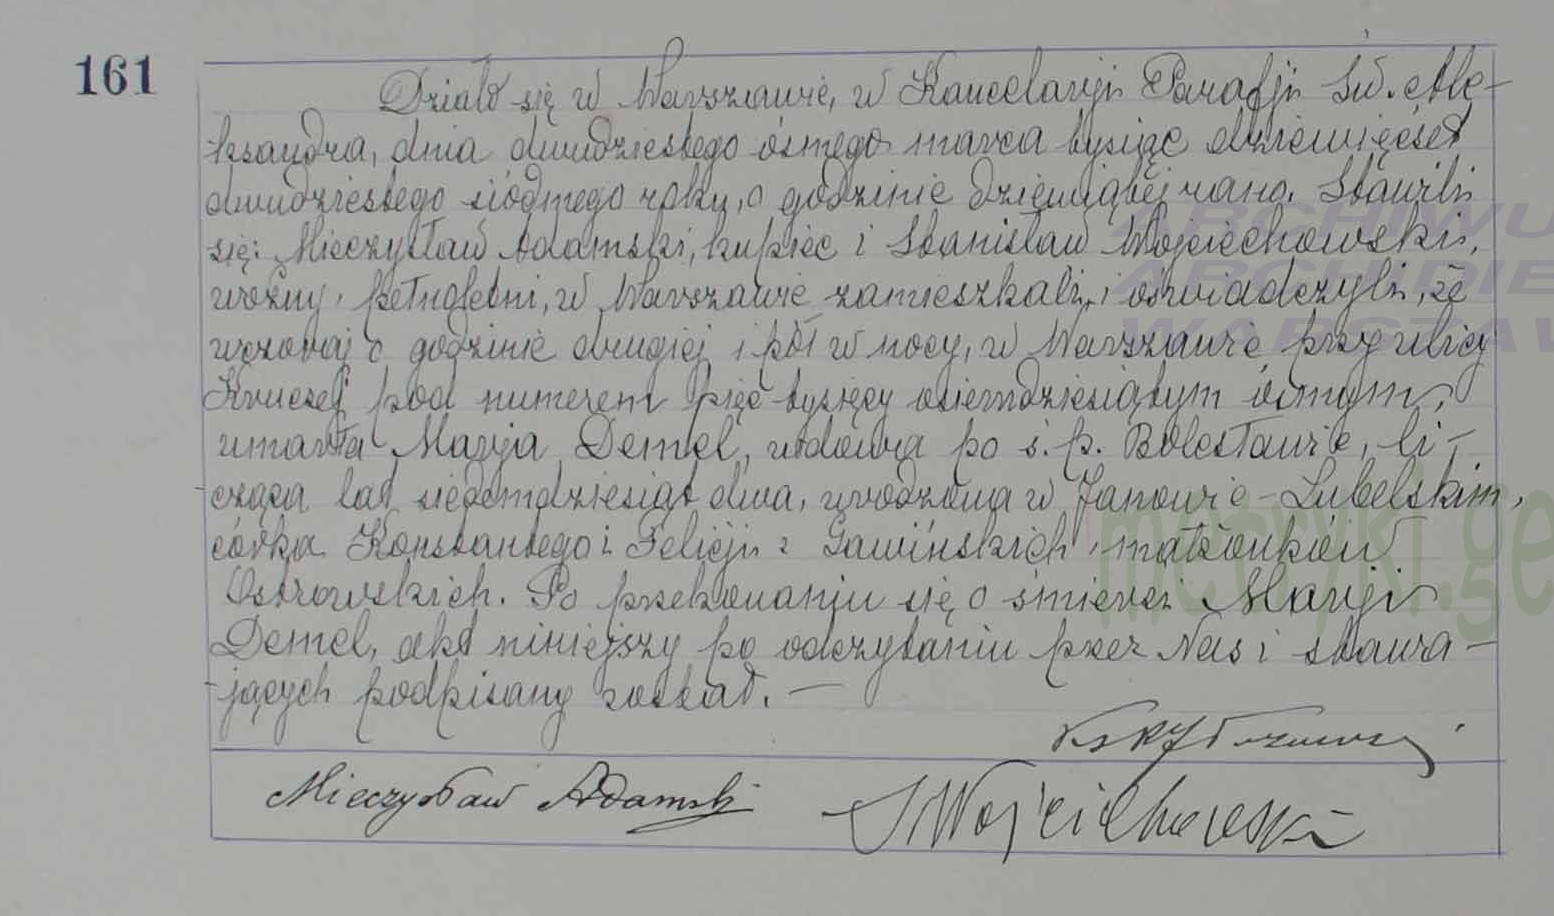 161
Działo się w Warszawie, w Kancelaryji Parafji Św. Ale-
ksandra, dnia dwudziestego ósmego marca tysiąc dziewięćset
dwudziestego siódmego roku, o godzinie dziewiątej rano. Stawili
się: Mieczysław Adamski, kupiec i Stanisław Wojciechowski,
woźny, pełnoletni, w Warszawie zamieszkali, i oświadczyli, że
wczoraj o godzinie drugiej i pół w nocy, w Warszawie przy ulicy
Kruczej pod numerem pięć tysięcy osiemdziesiątym ósmym,
umarła Marja Demel, wdowa po ś. p. Bolesławie, li-
cząca lat siedemdziesiąt dwa, urodzona w Janowie-Lubelskim,
córka Konstantego i Felicji z Gawińskich, małżonków
Ostrowskich. Po przekonaniu się o śmierci Maryji
Demel, akt niniejszy po odczytaniu przez Nas i stawa-
jących podpisany został. —
Mieczysław Adamski
SWojciechowski
ARCHIWU
ARCHIDIE
WARSZAW
metryki.ge